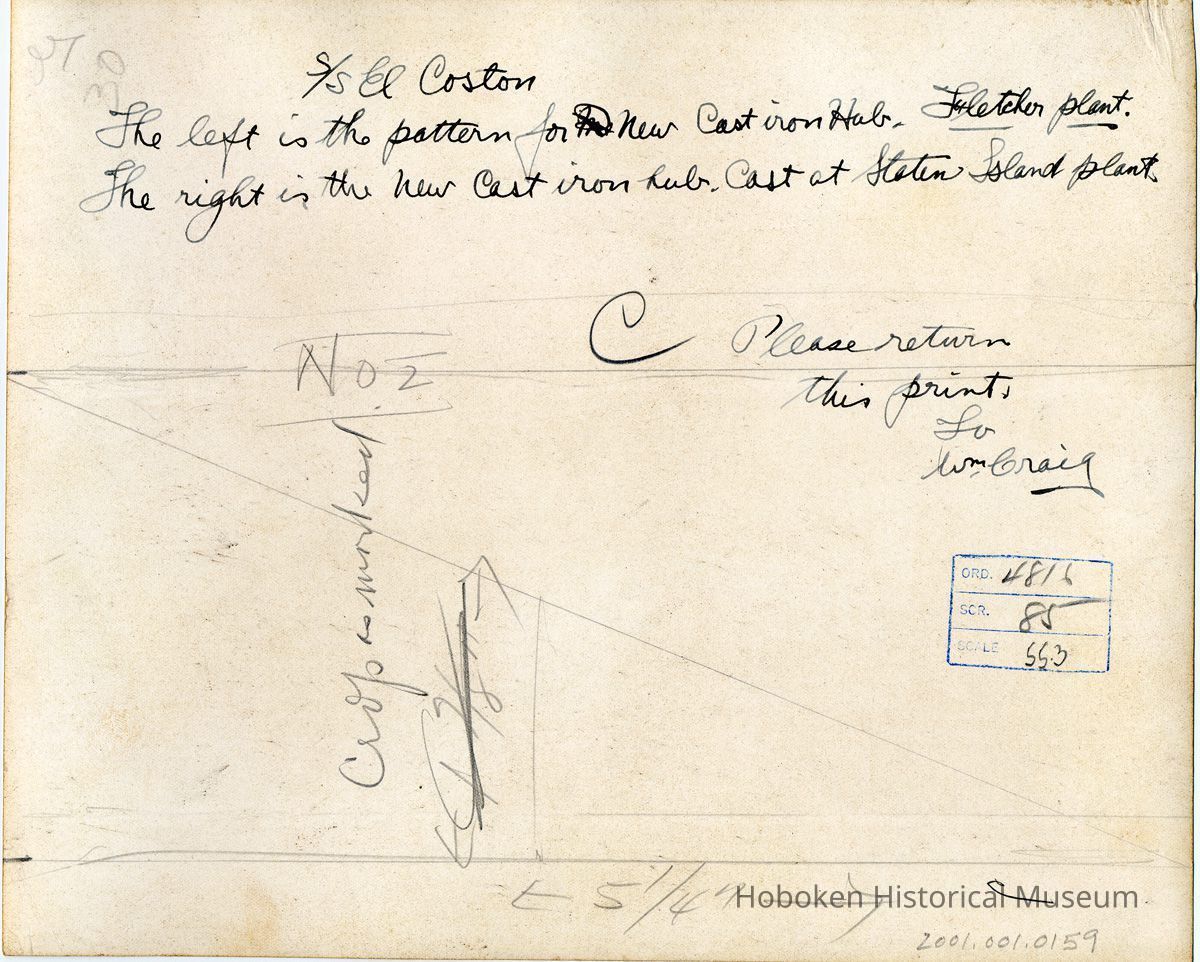 S/S El Coston
The left is the pattern for New Cast iron Hub. Fletcher plant.
The right is the New Cast iron hub. Cast at Staten Island plant.
C
Please return
this print
To
Wm. Craig
No. 2
Crop as marked
ORD. 4816
SCR. 85
SCALE 553
5 1/4"
Hoboken Historical Museum
2001.001.0159